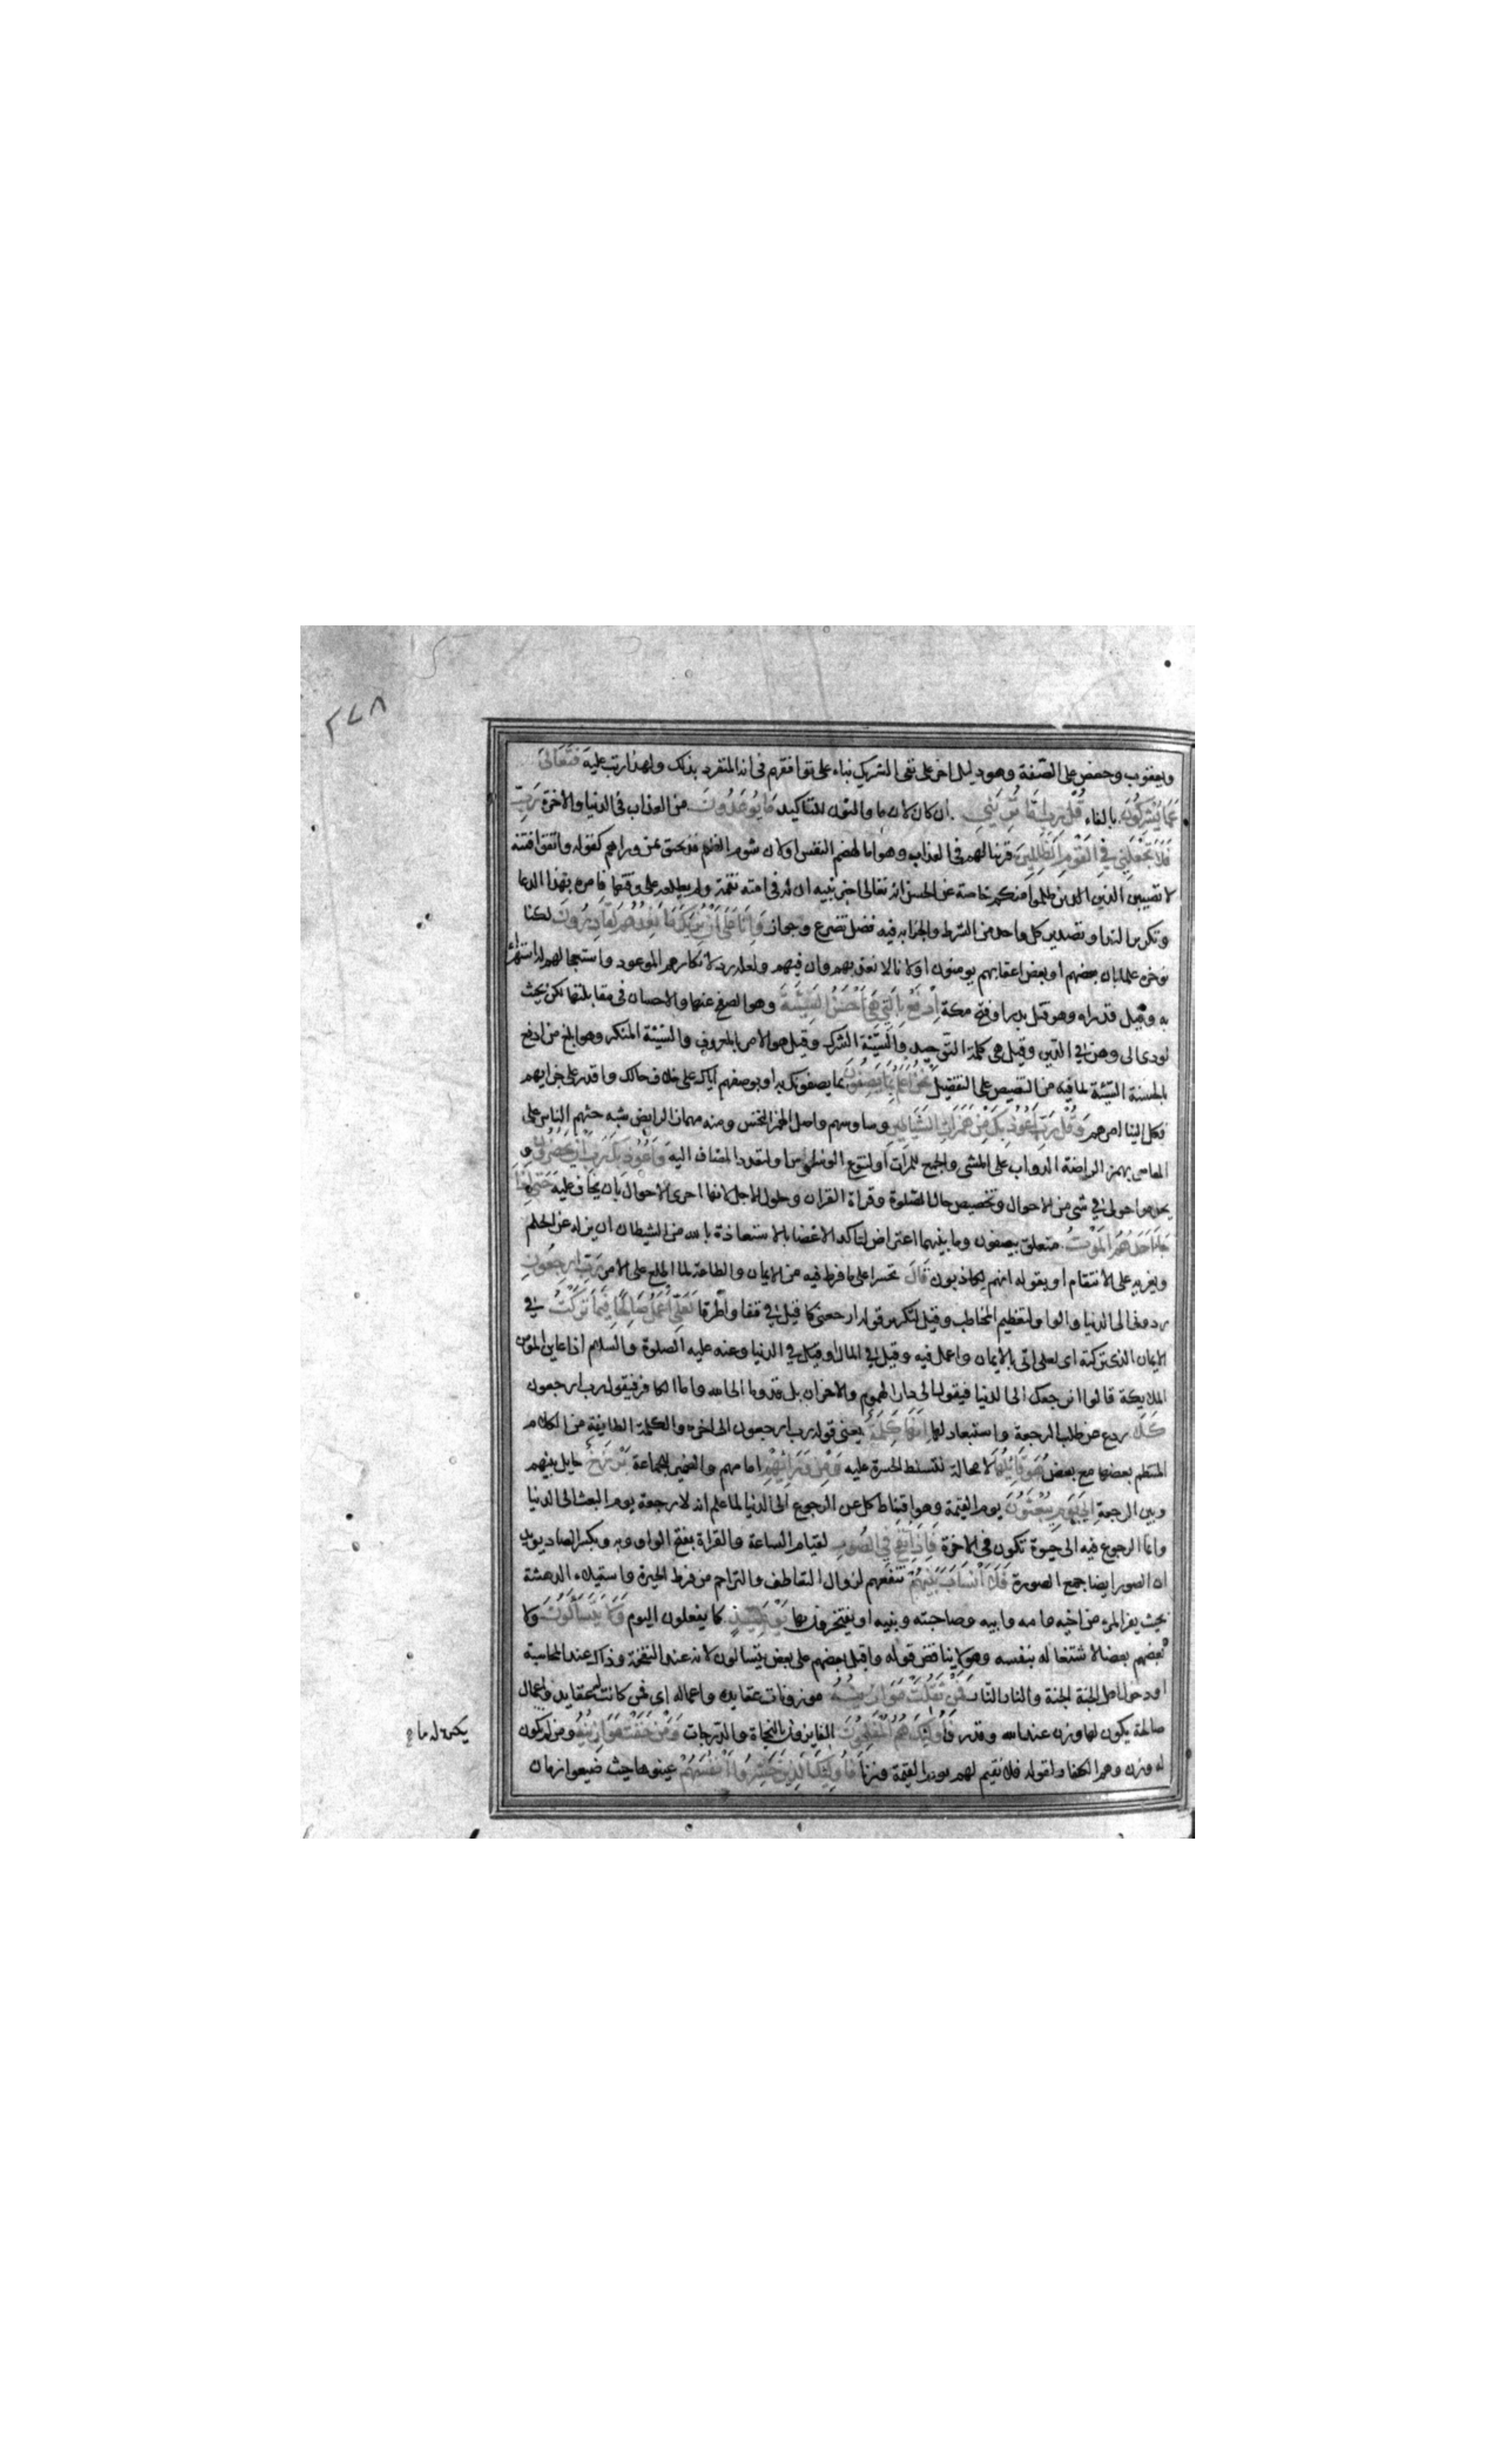 ٢٧٨
ويعقوب وحفص على الصفة وهو دليل اخر على نفى الشريك بناء على توافقهم فى انه المتفرد بذلك ولهذا رتب عليه فَتَعَالَىٰ
عَمَّا يُشْرِكُونَ بالفاء قُلْ رَبِّ إِمَّا تُرِيَنِّي ان كان لا بد ما والنون للتاكيد مَا يُوعَدُونَ من العذاب فى الدنيا والاخرة رَبِّ
فَلَا تَجْعَلْنِي فِي الْقَوْمِ الظَّالِمِينَ قرينا لهم فى العذاب وهو اما لهضم النفس او لان شوم الظلم قد يحيق بمن وراهم كقوله واتقوا فتنة
لا تصيبن الذين ظلموا منكم خاصة عن الحسن انه تعالى اخبر نبيه ان له فى امته نقمة ولم يطلعه على وقتها فامره بهذا الدعا
وتكرير الندا وتصدير كل واحد من الشرط والجزا به فضل تضرع وجوار وَإِنَّا عَلَىٰ أَنْ نُرِيَكَ مَا نَعِدُهُمْ لَقَادِرُونَ لكنا
نوخره علما بان بعضهم او بعض اعقابهم يومنون او لانا لا نعذبهم وانت فيهم ولعله رد لانكارهم الموعود واستعجالهم له استهزاء
به وقيل قد اراه وهو قتل بدر او فتح مكة اِدْفَعْ بِالَّتِي هِيَ أَحْسَنُ السَّيِّئَةَ وهو الصفح عنها والاحسان فى مقابلتها لكن بحيث
لم يودى الى وهن فى الدين وقيل هى كلمة التوحيد والسيئة الشرك وقيل هو الامر بالمعروف والسيئة المنكر وهو ابلغ من ادفع
بالحسنة السيئة لما فيه من التنصيص على التفضيل نَحْنُ أَعْلَمُ بِمَا يَصِفُونَ بما يصفونك به او بوصفهم اياك على خلاف حالك واقدر على جزايهم
فكل الينا امرهم وَقُلْ رَبِّ أَعُوذُ بِكَ مِنْ هَمَزَاتِ الشَّيَاطِينِ وساوسهم واصل الهمز النخس ومنه مهماز الرايض شبه حثهم الناس على
المعاصى بهمز الراضة الدواب على المشى والجمع للمرات او لتنوع الوساوس او لتعدد المضاف اليه وَأَعُوذُ بِكَ رَبِّ أَنْ يَحْضُرُونِ
يحوموا حولى فى شى من الاحوال وتخصيص حال الصلوة وقراة القران وحلول الاجل لانها احرى الاحوال بان يخاف عليه حَتَّىٰ إِذَا
جَاءَ أَحَدَهُمُ الْمَوْتُ متعلق بيصفون وما بينهما اعتراض لتاكد الاغضا بالاستعاذة بالله من الشيطان ان يزله عن الحلم
ويغريه على الانتقام او بقوله انهم لكاذبون قَالَ تحسرا على ما فرط فيه من الايمان والطاعة لما اطلع على الامر رَبِّ ارْجِعُونِ
ردونى الى الدنيا والواو لتعظيم المخاطب وقيل لتكرير قوله ارجعنى كما قيل فى قفا واطرقا لَعَلِّي أَعْمَلُ صَالِحًا فِيمَا تَرَكْتُ فى
الايمان الذى تركته اى لعلى اتى بالايمان واعمل فيه وقيل فى المال او قيل فى الدنيا وعنه عليه الصلوة والسلام اذا عاين المومن
الملايكة قالوا انرجعك الى الدنيا فيقول الى دار الهموم والاحزان بل قدوما الى الله واما الكافر فيقول رب ارجعون
كَلَّا ردع عن طلب الرجعة واستبعاد لها إِنَّهَا كَلِمَةٌ يعنى قوله رب ارجعون الى اخره والكلمة الطايفة من الكلام
المنتظم بعضها مع بعض هُوَ قَائِلُهَا لا محالة لتسلط الحسرة عليه وَمِنْ وَرَائِهِمْ امامهم والضمير للجماعة بَرْزَخٌ حايل بينهم
وبين الرجعة إِلَىٰ يَوْمِ يُبْعَثُونَ يوم القيمة وهو اقناط كلى عن الرجوع الى الدنيا لما علم انه لا رجعة يوم البعث الى الدنيا
وانما الرجوع فيه الى حيوة تكون فى الاخرة فَإِذَا نُفِخَ فِي الصُّورِ لقيام الساعة والقراة بفتح الواو وبه وبكسر الصاد يويد
ان الصور ايضا جمع الصورة فَلَا أَنْسَابَ بَيْنَهُمْ تنفعهم لزوال التعاطف والتراحم من فرط الحيرة واستيلاء الدهشة
بحيث يفر المرء من اخيه وامه وابيه وصاحبته وبنيه او يفتخرون بها يَوْمَئِذٍ كما يفعلون اليوم وَلَا يَتَسَاءَلُونَ ولا
بعضهم بعضا لاشتغاله بنفسه وهو لا يناقض قوله واقبل بعضهم على بعض يتسالون لانه عند النفخة وذاك عند المحاسبة
او دخول اهل الجنة الجنة والنار النار فَمَنْ ثَقُلَتْ مَوَازِينُهُ موزونات عقايده واعماله اى فمن كانت له عقايد واعمال
صالحة يكون لها وزن عند الله وقدر فَأُولَٰئِكَ هُمُ الْمُفْلِحُونَ الفايزون بالنجاة والدرجات وَمَنْ خَفَّتْ مَوَازِينُهُ ومن لم يكن
له وزن وهم الكفار لقوله فلا نقيم لهم يوم القيمة وزنا فَأُولَٰئِكَ الَّذِينَ خَسِرُوا أَنْفُسَهُمْ غبنوها حيث ضيعوا زمان